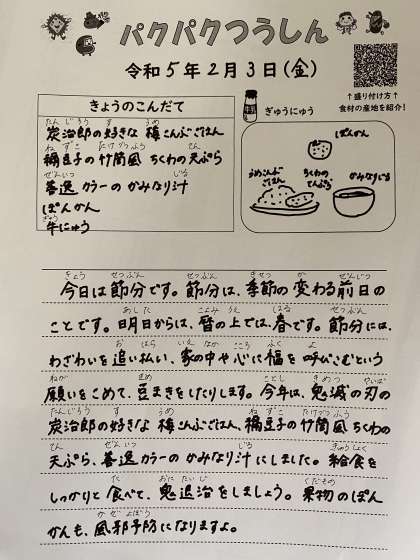 パクパクつうしん
令和5年2月3日(金)
↑盛り付け方↑
食材の産地を紹介!
きょうのこんだて
炭治郎の好きな 梅こんぶごはん
禰豆子の竹筒風 ちくわの天ぷら
善逸カラーの かみなり汁
ぽんかん
牛にゅう
ぎゅうにゅう
ぽんかん
うめこんぶ
ごはん
ちくわの
てんぷら
かみなりじる
今日は節分です。節分は、季節の変わる前日の
ことです。明日からは、暦の上では、春です。節分には、
わざわいを追い払い、家の中や心に福を呼びこむという
願いをこめて、豆まきをしたりします。今年は、鬼滅の刃の
炭治郎の好きな 梅こんぶごはん、禰豆子の竹筒風 ちくわの
天ぷら、善逸カラーの かみなり汁にしました。給食を
しっかりと食べて、鬼退治をしましょう。果物のぽん
かんも、風邪予防になりますよ。